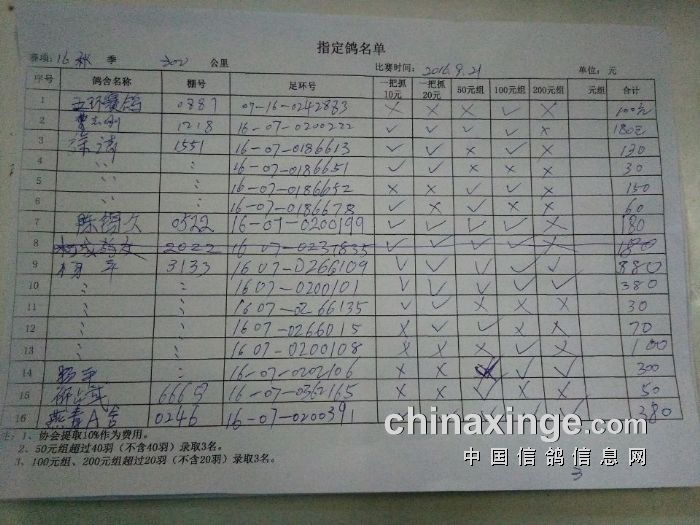 指定鸽名单
赛项: 16 秋 季 300 公里 比赛时间: 2016.9.21 单位: 元
序号 鸽舍名称 棚号 足环号 一把抓10元 一把抓20元 50元组 100元组 200元组 元组 合计
1 五环赛鸽 0887 07-16-0242883 × × × ✓ × 100元
2 曹志刚 1218 16-07-0200222 ✓ ✓ ✓ ✓ × 180元
3 1551 16-07-0186613 ✓ ✓ × ✓ × 130
4 〃 : 16-07-0186651 ✓ ✓ × × × 30
5 〃 : 16-07-0186652 × × ✓ ✓ × 150
6 〃 : 16-07-0186678 ✓ × ✓ × × 60
7 陈得久 0522 16-07-0200199 ✓ ✓ ✓ ✓ × 180
8 2022 16 07-0237835 ✓ ✓ ✓ ✓ × 180
9 3133 16 07-0266109 ✓ ✓ ✓ ✓ ✓ 380
10 : : 16 07-0200101 ✓ ✓ ✓ ✓ ✓ 380
11 : : 16 07-0266135 ✓ ✓ × × × 30
12 : : 16 07-0266015 × ✓ ✓ × × 70
13 : : 16 07-0200108 × × × ✓ × 100
14 : 16-07-0202106 × × ✓ ✓ 300
15 6665 16-07-0352165 × × ✓ × × 50
16 燕青A舍 0246 16-07-0200391 380
注: 1、协会提取10%作为费用。
2、50元组超过40羽（不含40羽）录取3名。
3、100元组、200元组超过20羽（不含20羽）录取3名。
chinaxinge.com
中国信鸽信息网
3